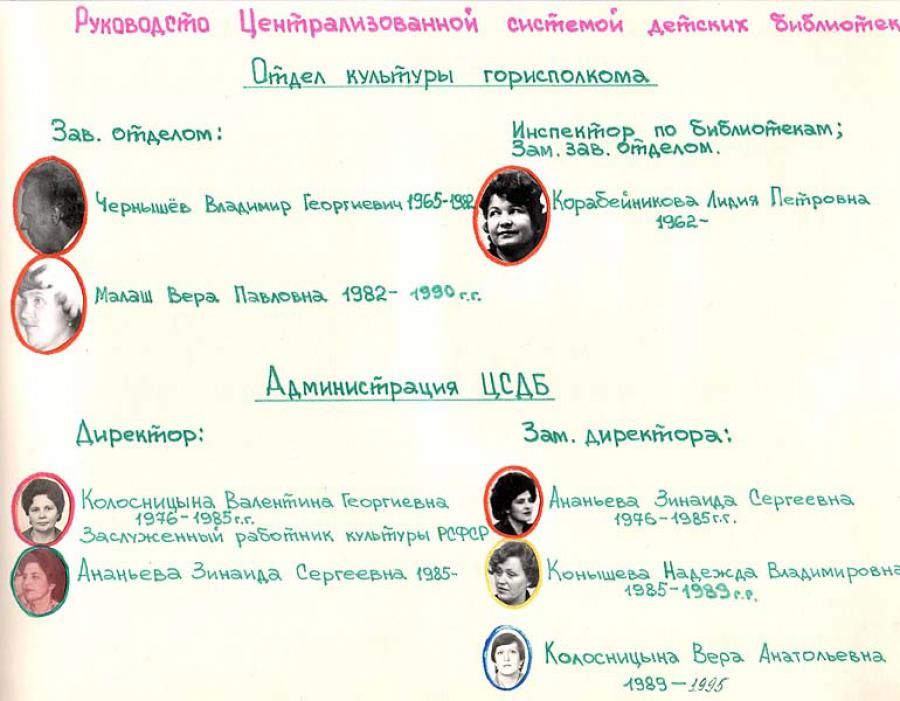 Руководство Централизованной системой детских библиотек
Отдел культуры горисполкома
Зав. отделом:
Чернышёв Владимир Георгиевич 1965-1982
Малаш Вера Павловна 1982- 1990 г.г.
Инспектор по библиотекам;
Зам. зав. отделом.
Корабейникова Лидия Петровна
1962-
Администрация ЦСДБ
Директор:
Колосницына Валентина Георгиевна
1976-1985 г.г.
Заслуженный работник культуры РСФСР
Ананьева Зинаида Сергеевна 1985-
Зам. директора:
Ананьева Зинаида Сергеевна
1976-1985 г.г.
Конышева Надежда Владимировна
1985-1989 г.г.
Колосницына Вера Анатольевна
1989-1995